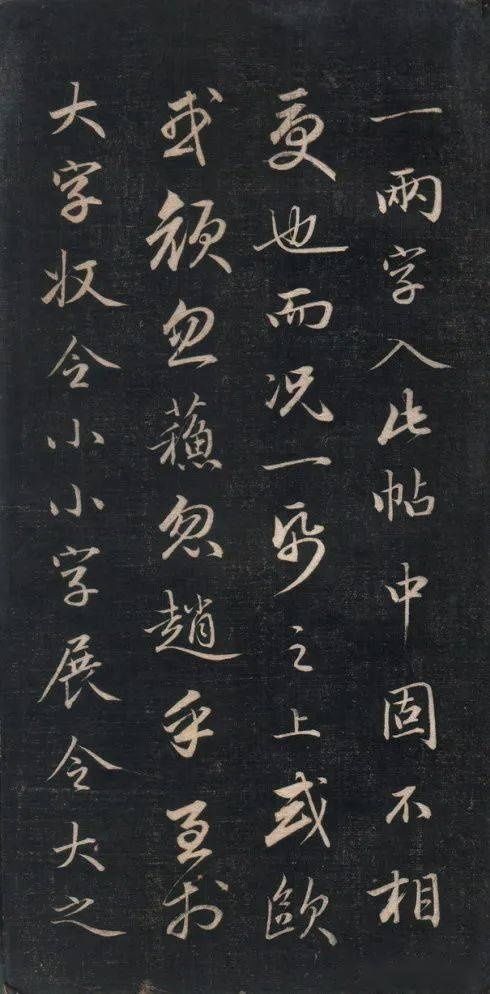 一兩字入此帖中固不相
更也而况一帋之上或歐
或顔忽蘓忽趙乎至於
大字收令小小字展令大之